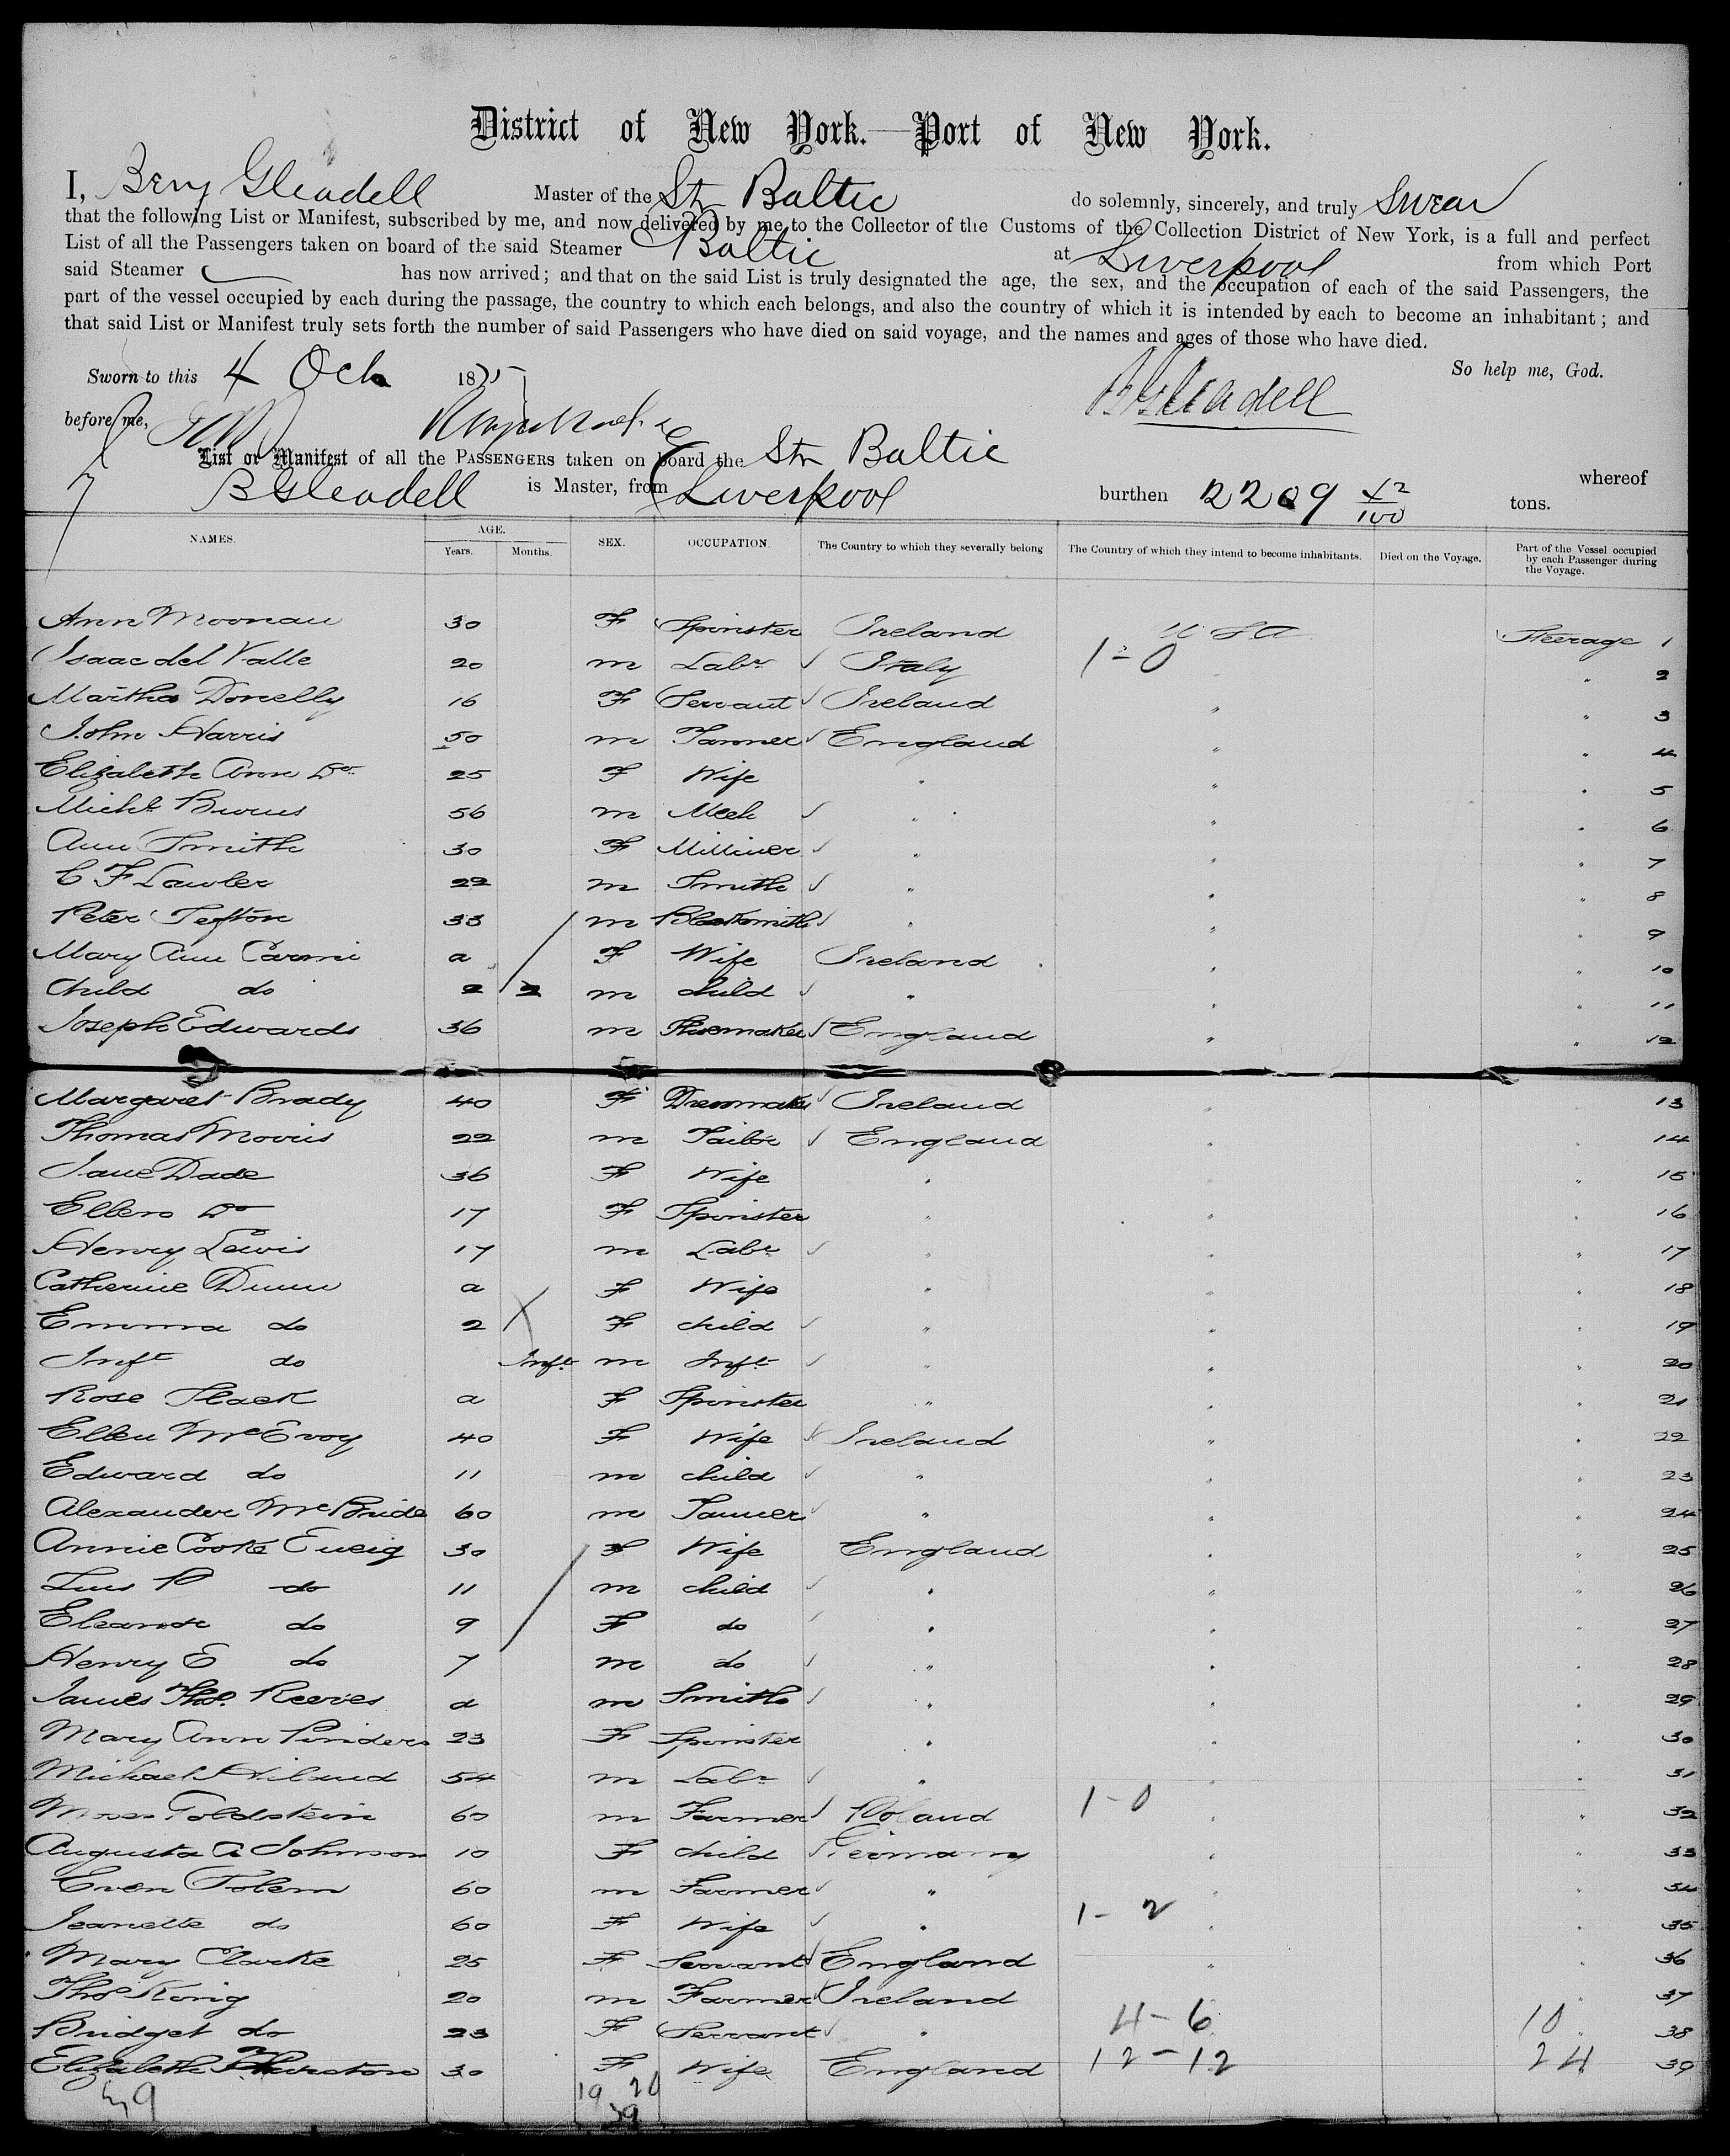 District of New York.—Port of New York.
I, Benj Gleadell Master of the Str Baltic do solemnly, sincerely, and truly swear
that the following List or Manifest, subscribed by me, and now delivered by me to the Collector of the Customs of the Collection District of New York, is a full and perfect
List of all the Passengers taken on board of the said Steamer Baltic at Liverpool from which Port
said Steamer has now arrived; and that on the said List is truly designated the age, the sex, and the occupation of each of the said Passengers, the
part of the vessel occupied by each during the passage, the country to which each belongs, and also the country of which it is intended by each to become an inhabitant; and
that said List or Manifest truly sets forth the number of said Passengers who have died on said voyage, and the names and ages of those who have died.
So help me, God.
Sworn to this 4 Oct 1875
B Gleadell
before me,
List or Manifest of all the PASSENGERS taken on board the Str Baltic whereof
B Gleadell is Master, from Liverpool burthen 2209 42/100 tons.
NAMES. AGE. Years. Months. SEX. OCCUPATION. The Country to which they severally belong The Country of which they intend to become inhabitants. Died on the Voyage. Part of the Vessel occupied by each Passenger during the Voyage.
Ann Moonau 30 F Spinster Ireland U S A Steerage 1
Isaac del Valle 20 m Labr Italy 1-0 " 2
Martha Donelly 16 F Servant Ireland " " 3
John Harris 50 m Tanner England " " 4
Elizabeth Ann Do 25 F Wife " " " 5
Michl Burns 56 m Mech " " " 6
Ann Smith 30 F Milliner " " " 7
C F Lawler 22 m Smith " " " 8
Peter Tefton 33 m Blacksmith " " " 9
Mary Ann Carmi a F Wife Ireland " " 10
Child do 2 2 m child " " " 11
Joseph Edwards 36 m Shoemaker England " " 12
Margaret Brady 40 F Dressmaker Ireland " " 13
Thomas Morris 22 m Tailor England " " 14
Jane Dade 36 F Wife " " " 15
Ellen Do 17 F Spinster " " " 16
Henry Lewis 17 m Labr " " " 17
Catherine Dunn a F Wife " " " 18
Emma do 2 F child " " " 19
Inft do Inft m Inft " " " 20
Rose Slack a F Spinster " " " 21
Ellen McEvoy 40 F Wife Ireland " " 22
Edward do 11 m child " " " 23
Alexander McBride 60 m Tanner " " " 24
Annie Cooke Eweig 30 F Wife England " " 25
do 11 m child " " " 26
Eleanor do 9 F do " " " 27
Henry E do 7 m do " " " 28
James Thos. Reeves a m Smith " " " 29
Mary Ann Pinders 23 F Spinster " " " 30
Michael Hiland 54 m Labr " " " 31
Moses Goldstein 60 m Farmer Poland 1-0 " " 32
Augusta A Johnson 10 F child Germany " " 33
Even Tolem 60 m Farmer " " " 34
Jeanette do 60 F Wife " 1-2 " " 35
Mary Clarke 25 F Servant England " " 36
Thos King 20 m Farmer Ireland " 37
Bridget do 23 F Servant " 4-6 10 " 38
Elizabeth Thurston 30 F Wife England 12-12 24 39
39 19 20
39